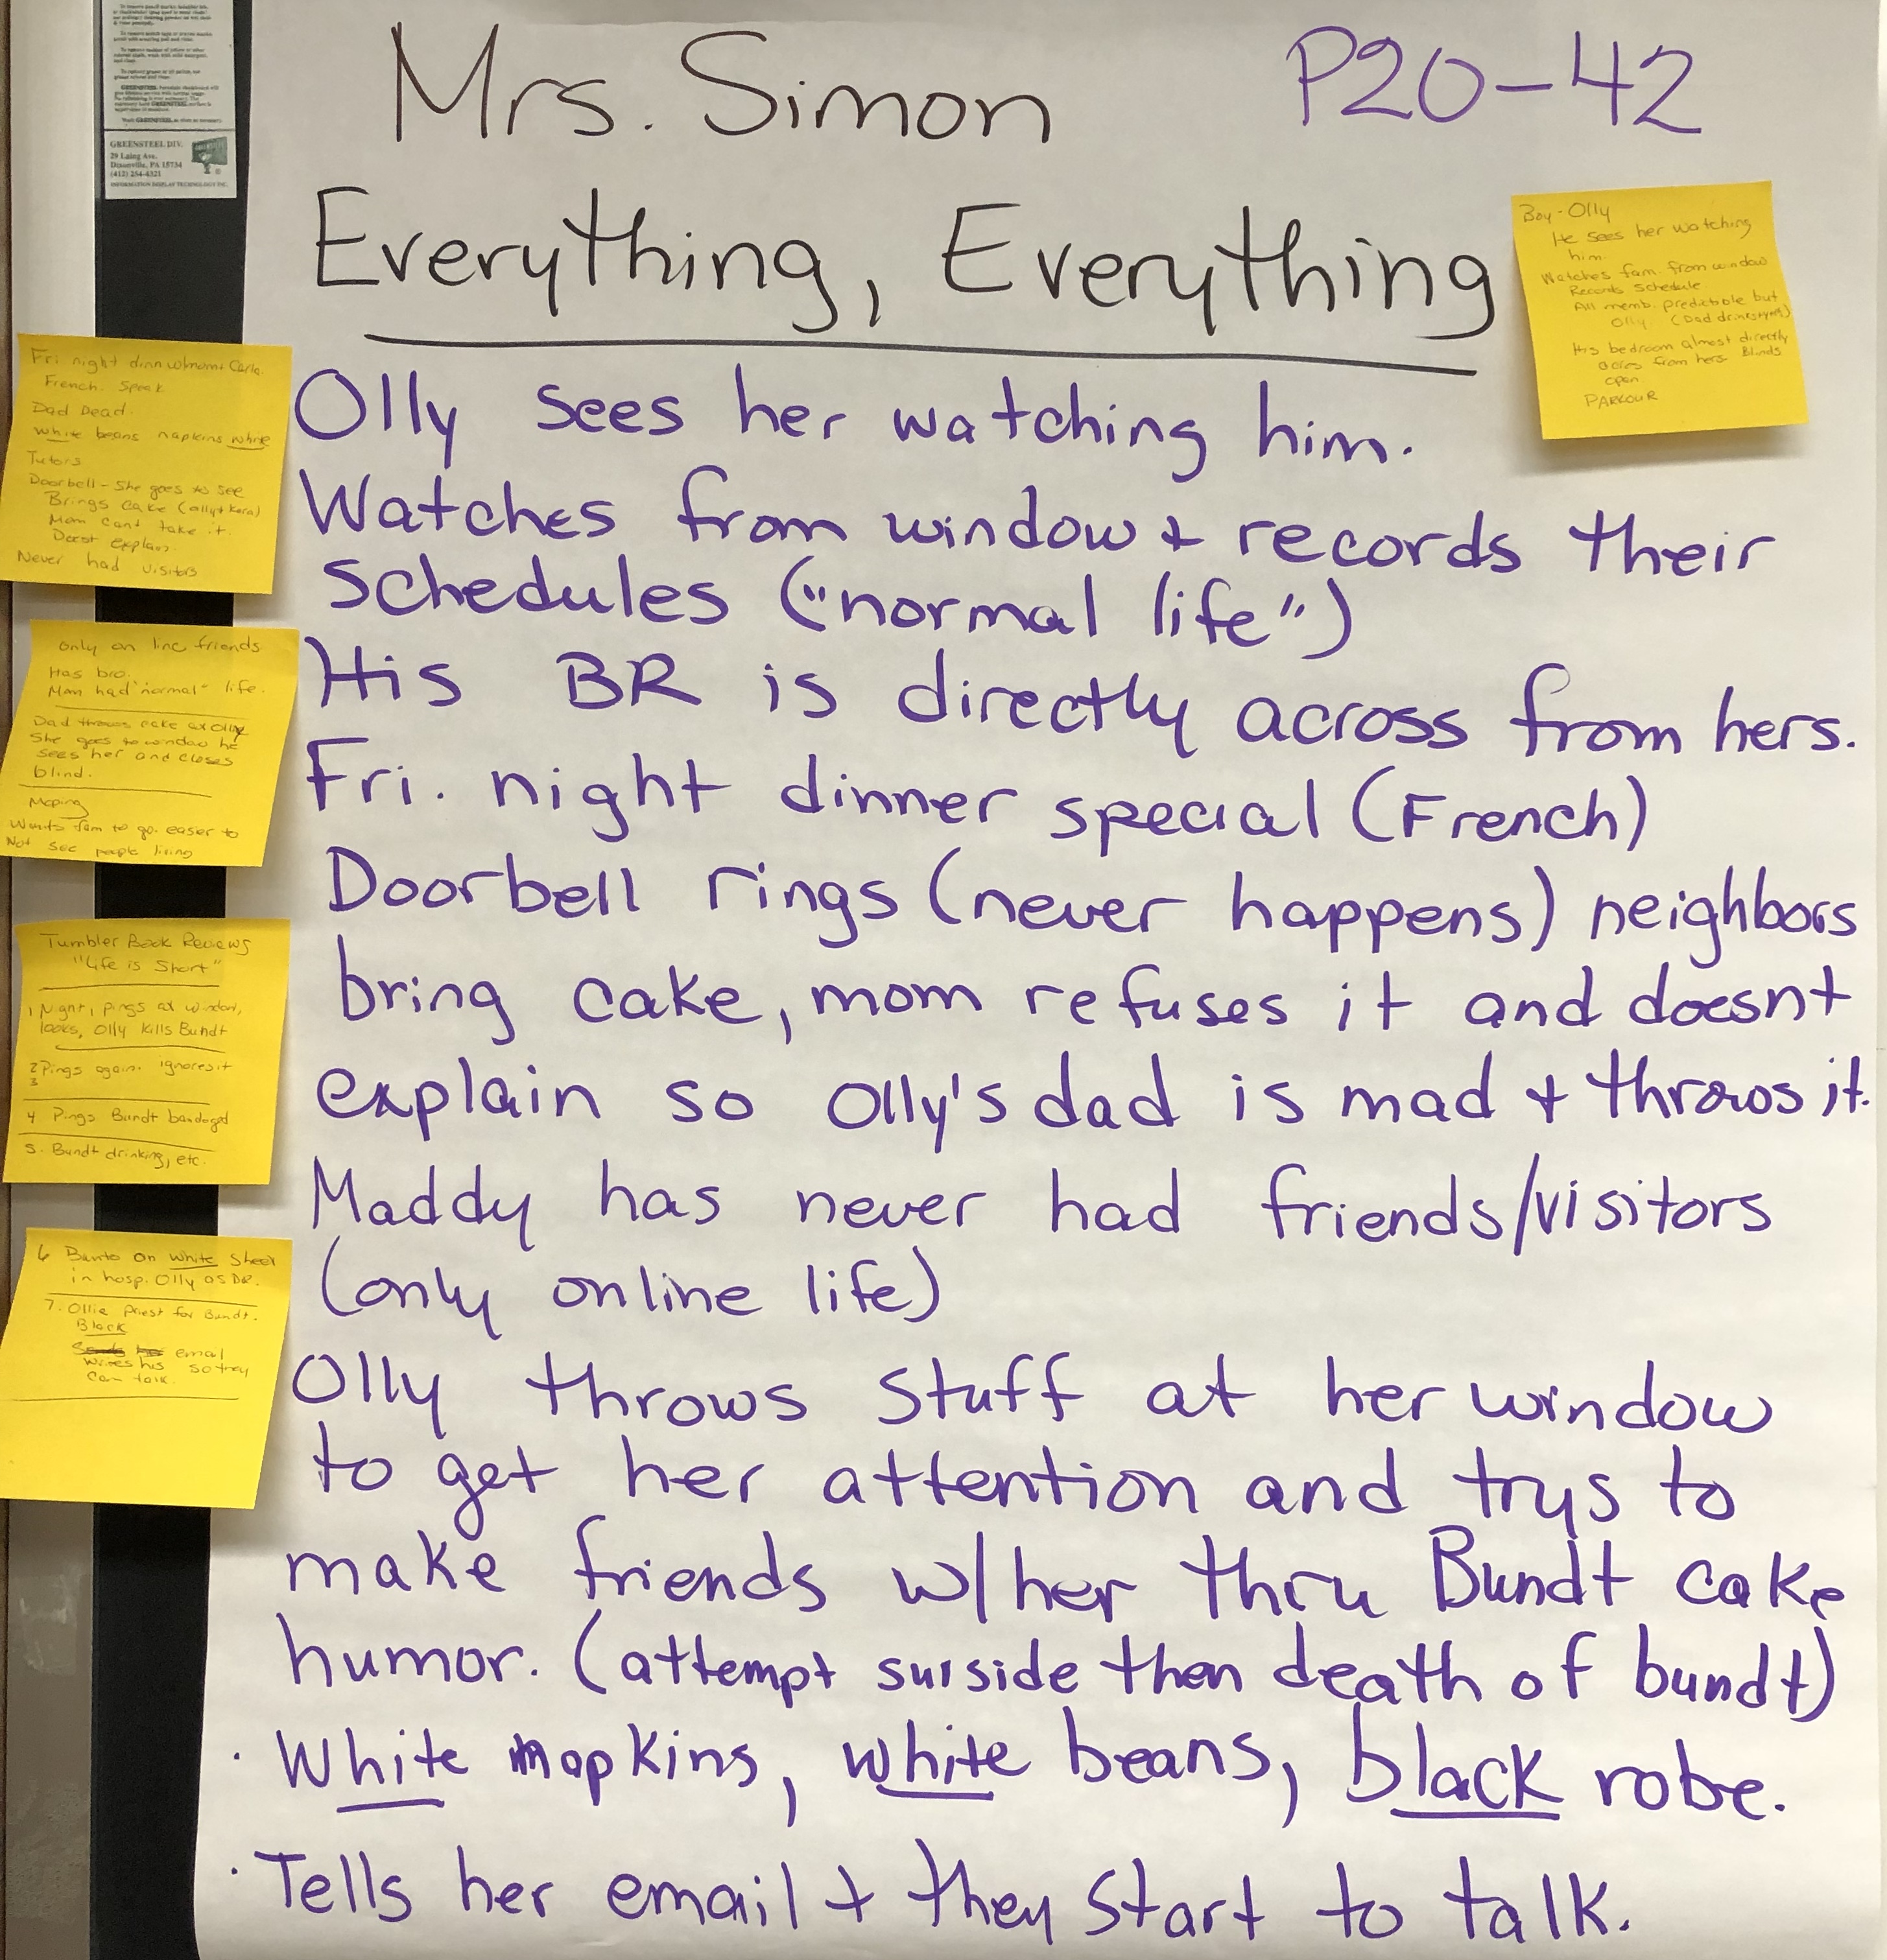 GREENSTEEL DIV.
29 Laing Ave.
Dixonville, PA 15734
(412) 254-4321
INFORMATION DISPLAY TECHNOLOGY INC.
Mrs. Simon P20-42
Everything, Everything
Olly sees her watching him.
Watches from window + records their
schedules ("normal life")
His BR is directly across from hers.
Fri. night dinner special (French)
Doorbell rings (never happens) neighbors
bring cake, mom refuses it and doesnt
explain so Olly's dad is mad + throws it.
Maddy has never had friends/visitors
(only online life)
Olly throws stuff at her window
to get her attention and trys to
make friends w/her thru Bundt cake
humor. (attempt suiside then death of bundt)
· White napkins, white beans, black robe.
· Tells her email + they start to talk.
Boy - Olly
He sees her watching
him.
Watches fam. from window
Records schedule
All memb. predictable but
Olly (Dad
His bedroom almost directly
from hers Blinds
open
PARKOUR
Fri night dinn w/mom + Carla.
French. Speak
Dad Dead.
White beans napkins white
Tutors
Doorbell - She goes to see
Brings cake (olly + Kara)
Mom cant take it.
explain.
Never had visitors
only on line friends
Has bro.
Mom had "normal" life.
Dad throws cake at Olly
She goes to window he
sees her and closes
blind.
Moping
Wants fam to go. easier to
Not see people living
Tumbler Book Reviews
"Life is Short"
1 Night, pings at window,
looks, Olly kills Bundt
2 Pings again. ignores it
3
4 Pings Bundt bandaged
5. Bundt drinking, etc.
6 on white sheet
in hosp. Olly as DR.
7. Ollie priest for Bundt.
Black
email
his so they
can talk.